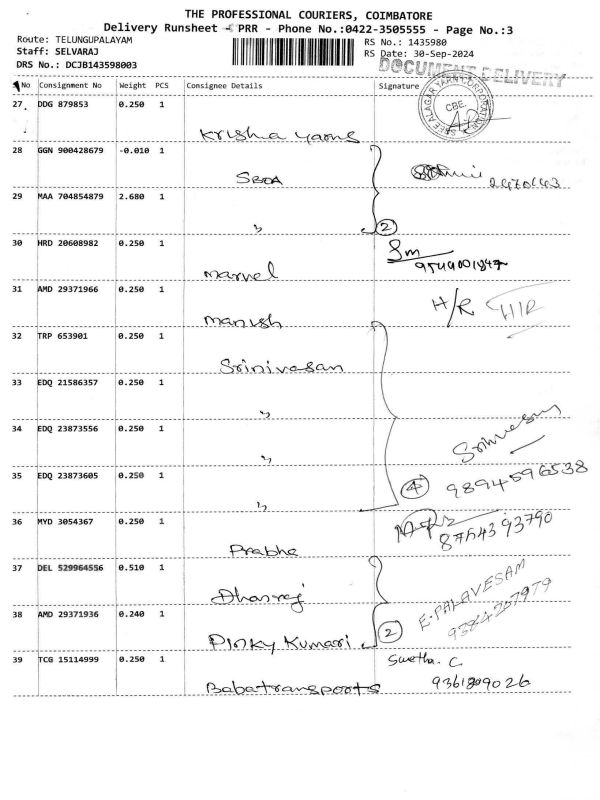 THE PROFESSIONAL COURIERS, COIMBATORE
Delivery Runsheet - PRR - Phone No.:0422-3505555 - Page No.:3
Route: TELUNGUPALAYAM
RS No.: 1435980
Staff: SELVARAJ
RS Date: 30-Sep-2024
DRS No.: DCJB143598003
DOCUMENT DELIVERY
No Consignment No Weight PCS Consignee Details Signature
27 DDG 879853 0.250 1
CBE.
Krishna Yarns
28 GGN 900428679 -0.010 1
SBOA
29 MAA 704854879 2.680 1
" 2
30 HRD 20608982 0.250 1
Sm
Marvel
31 AMD 29371966 0.250 1
H/R H/R
Manish
32 TRP 653901 0.250 1
Srinivasan
33 EDQ 21586357 0.250 1
"
34 EDQ 23873556 0.250 1
Srinivasan
"
35 EDQ 23873605 0.250 1
4 9894596538
"
36 MYD 3054367 0.250 1
8754393790
Prabha
37 DEL 529964556 0.510 1
Dhanraj
E.PALAVESAM
38 AMD 29371936 0.240 1
2 9384257979
Pinky Kumari
39 TCG 15114999 0.250 1
Swetha. C
Babatransports